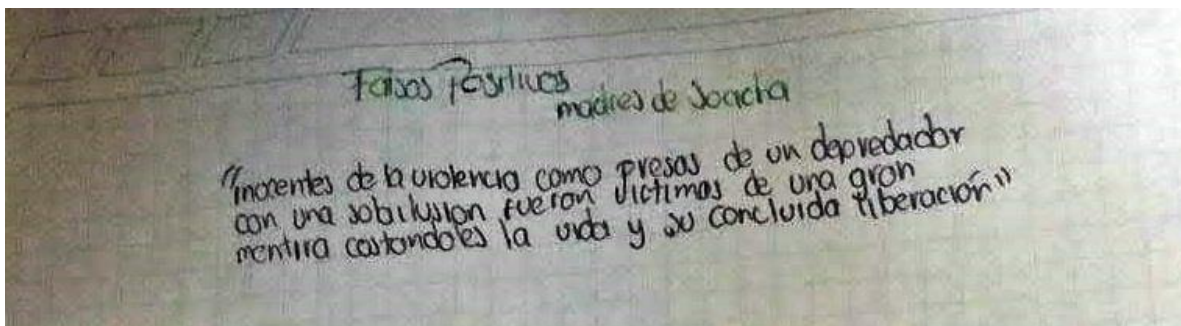 Falsos Positivos
madres de Soacha
"inocentes de la violencia como presas de un depredador
con una sobilusion fueron victimas de una gran
mentira costandoles la vida y su concluida liberación"